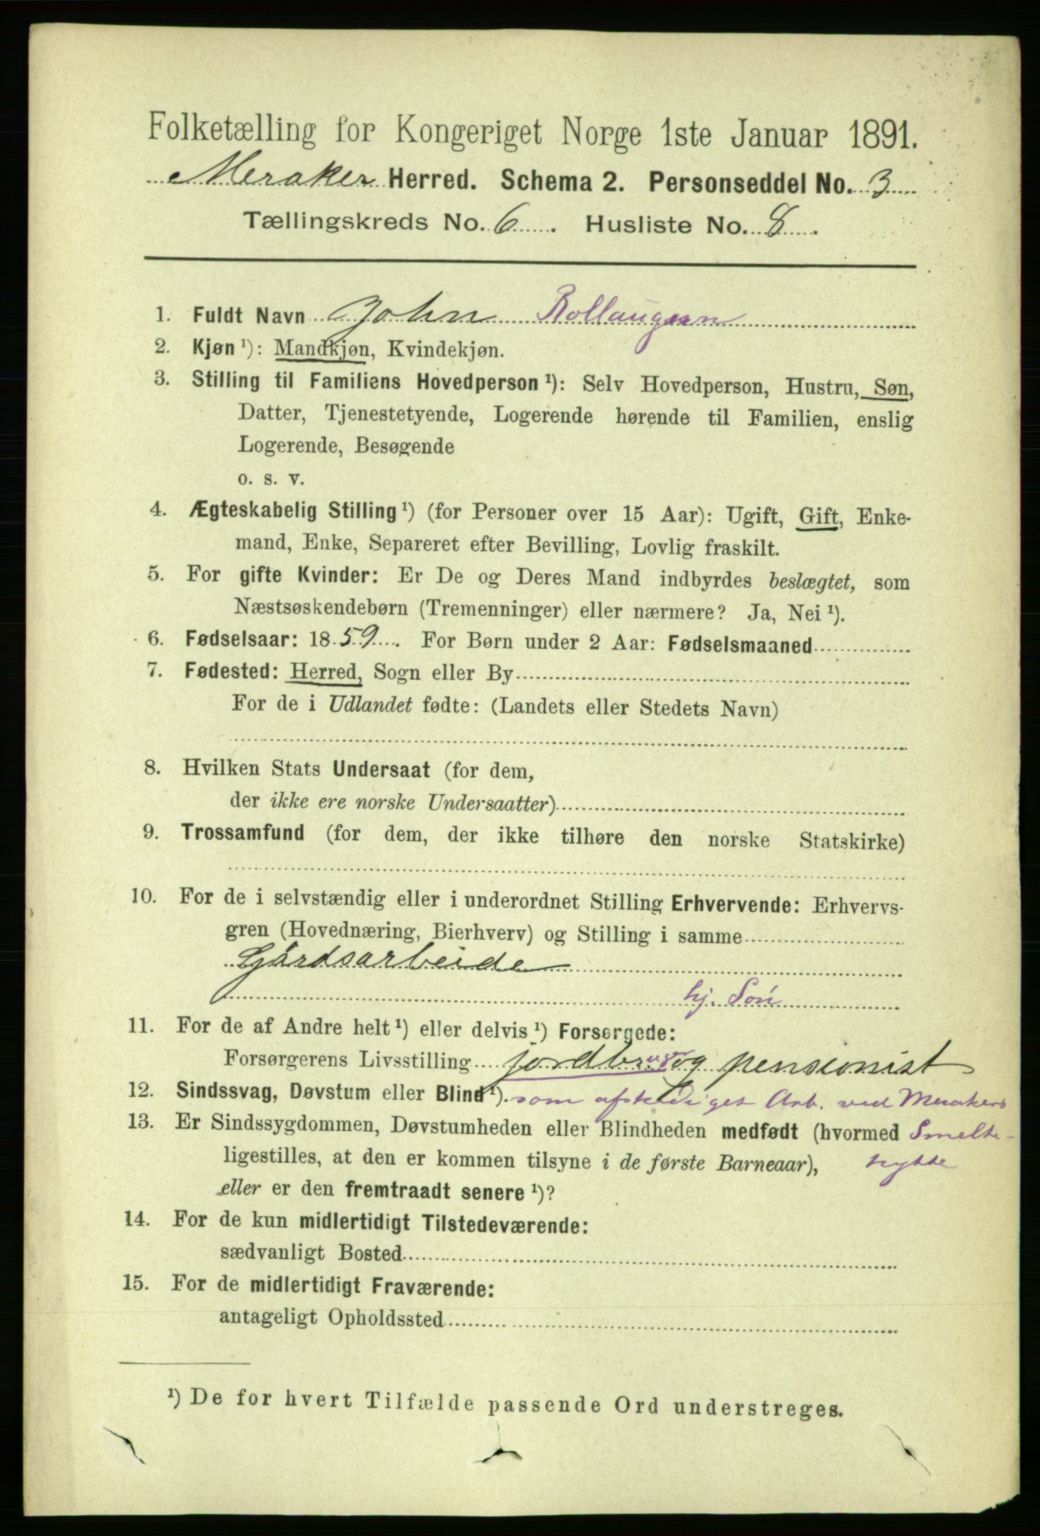 Folketælling for Kongeriget Norge 1ste Januar 1891.
Meraker Herred. Schema 2. Personseddel No. 3
Tællingskreds No. 6. Husliste No. 8.
1. Fuldt Navn John Rollaugsen
2. Kjøn ¹): Mandkjøn, Kvindekjøn.
3. Stilling til Familiens Hovedperson ¹): Selv Hovedperson, Hustru, Søn,
Datter, Tjenestetyende, Logerende hørende til Familien, enslig
Logerende, Besøgende
o. s. v.
4. Ægteskabelig Stilling ¹) (for Personer over 15 Aar): Ugift, Gift, Enke-
mand, Enke, Separeret efter Bevilling, Lovlig fraskilt.
5. For gifte Kvinder: Er De og Deres Mand indbyrdes beslægtet, som
Næstsøskendebørn (Tremenninger) eller nærmere? Ja, Nei ¹).
6. Fødselsaar: 1859. For Børn under 2 Aar: Fødselsmaaned
7. Fødested: Herred, Sogn eller By
For de i Udlandet fødte: (Landets eller Stedets Navn)
8. Hvilken Stats Undersaat (for dem,
der ikke ere norske Undersaatter)
9. Trossamfund (for dem, der ikke tilhøre den norske Statskirke)
10. For de i selvstændig eller i underordnet Stilling Erhvervende: Erhvervs-
gren (Hovednæring, Bierhverv) og Stilling i samme
Gårdsarbeide
hj. Søn
11. For de af Andre helt ¹) eller delvis ¹) Forsørgede:
Forsørgerens Livsstilling jordbr. og pensionist
12. Sindssvag, Døvstum eller Blind ¹). som afskediget Arb. ved Merakers
13. Er Sindssygdommen, Døvstumheden eller Blindheden medfødt (hvormed Smelte-
ligestilles, at den er kommen tilsyne i de første Barneaar), hytte
eller er den fremtraadt senere ¹)?
14. For de kun midlertidigt Tilstedeværende:
sædvanligt Bosted
15. For de midlertidigt Fraværende:
antageligt Opholdssted
¹) De for hvert Tilfælde passende Ord understreges.